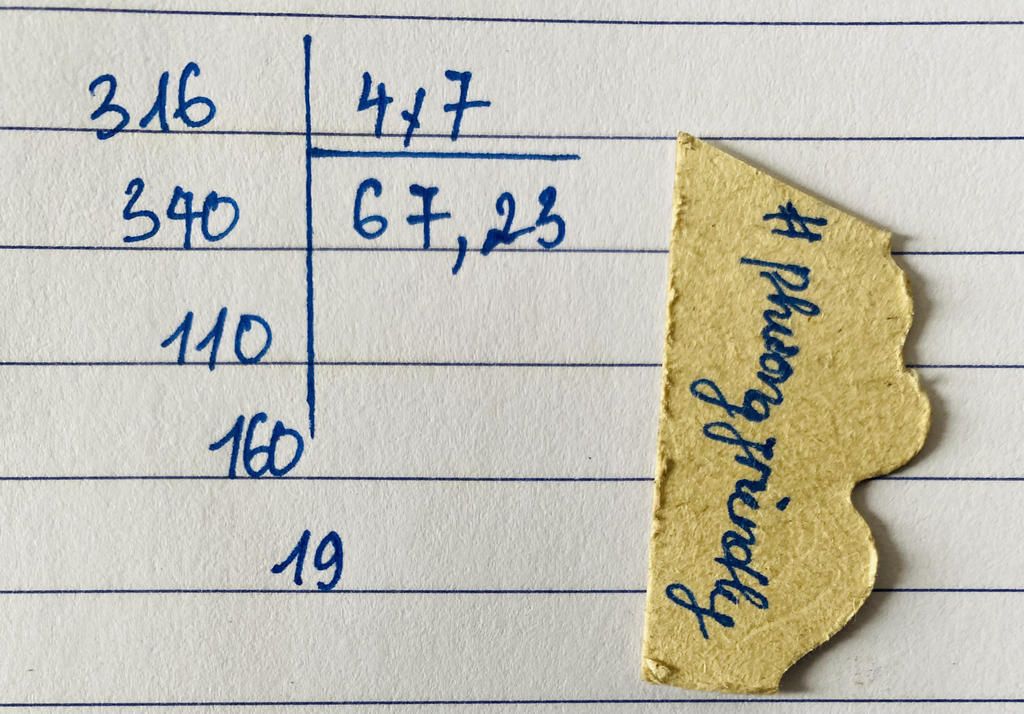 316 4x7
340 67,23
110
160
19
# phuongfrindly